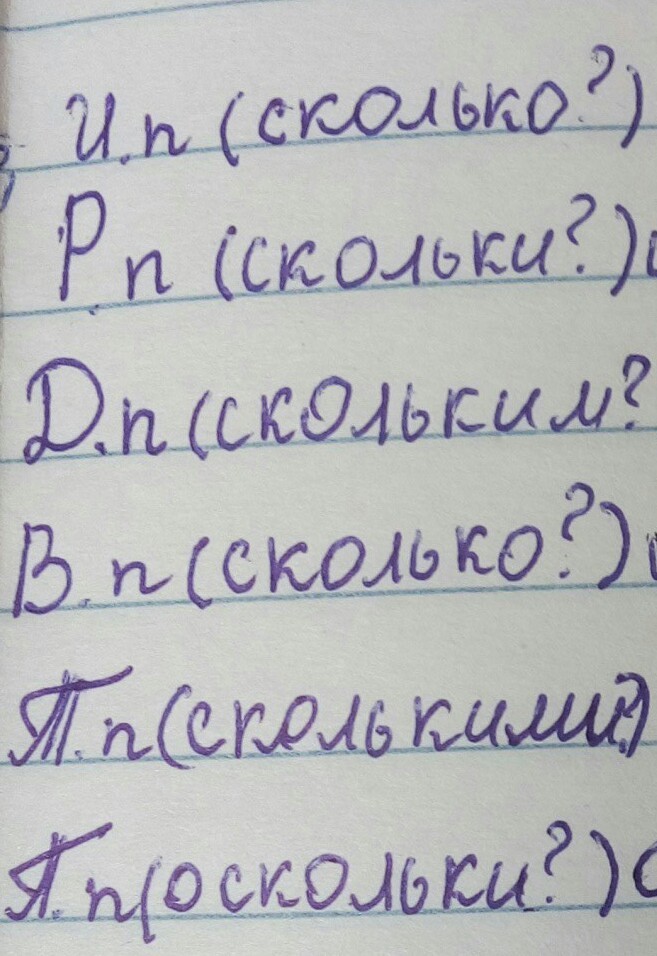 И.п (сколько?)
Р.п (скольки?)
Д.п (скольким?
В.п (сколько?)
Т.п (сколькими?)
П.п (о скольки?)